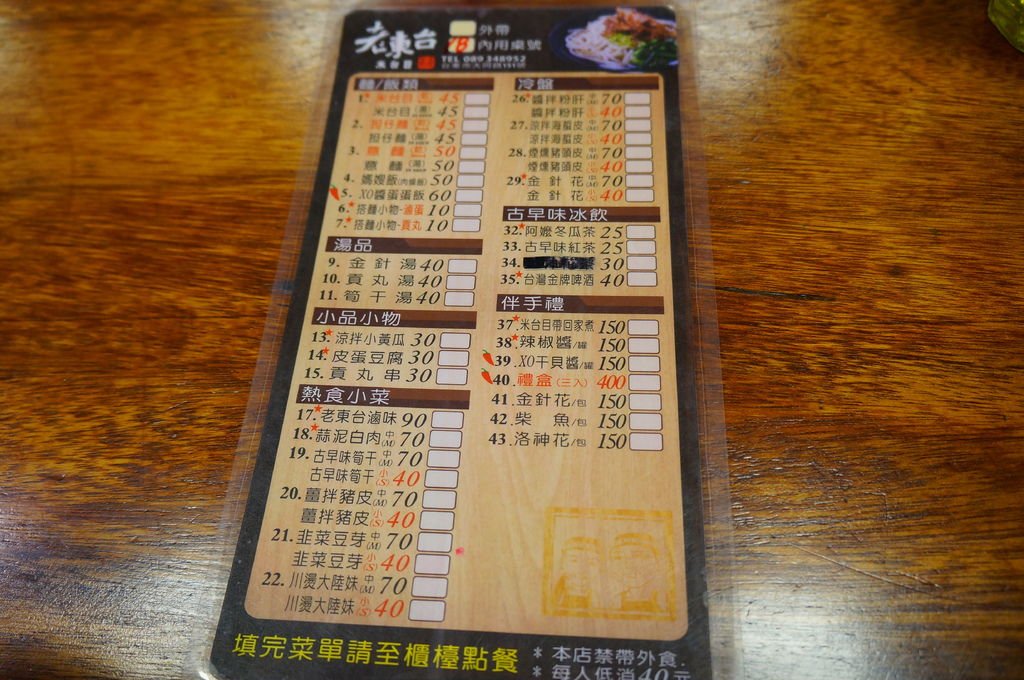 老東台
外帶
內用桌號
TEL 089 348952
麵/飯類
1. 米台目 45
米台目(湯) 45
2. 担仔麵 45
担仔麵(湯) 45
3. 意麵 50
意麵(湯) 50
4. 媽嫂飯(肉燥飯) 50
5. XO醬蛋蛋飯 60
6. 搭麵小物-滷蛋 10
7. 搭麵小物-貢丸 10
湯品
9. 金針湯 40
10. 貢丸湯 40
11. 筍干湯 40
小品小物
13. 涼拌小黃瓜 30
14. 皮蛋豆腐 30
15. 貢丸串 30
熱食小菜
17. 老東台滷味 90
18. 蒜泥白肉 中(M) 70
19. 古早味筍干 中(M) 70
古早味筍干 小(S) 40
20. 薑拌豬皮 中(M) 70
薑拌豬皮 小(S) 40
21. 韭菜豆芽 中(M) 70
韭菜豆芽 小(S) 40
22. 川燙大陸妹 中(M) 70
川燙大陸妹 小(S) 40
冷盤
26. 醬拌粉肝 中(M) 70
醬拌粉肝 小(S) 40
27. 涼拌海蜇皮 中(M) 70
涼拌海蜇皮 小(S) 40
28. 煙燻豬頭皮 中(M) 70
煙燻豬頭皮 小(S) 40
29. 金針花 中(M) 70
金針花 小(S) 40
古早味冰飲
32. 阿嬤冬瓜茶 25
33. 古早味紅茶 25
34. 30
35. 台灣金牌啤酒 40
伴手禮
37. 米台目帶回家煮 150
38. 辣椒醬/罐 150
39. XO干貝醬/罐 150
40. 禮盒(三入) 400
41. 金針花/包 150
42. 柴魚/包 150
43. 洛神花/包 150
填完菜單請至櫃檯點餐
* 本店禁帶外食.
* 每人低消40元